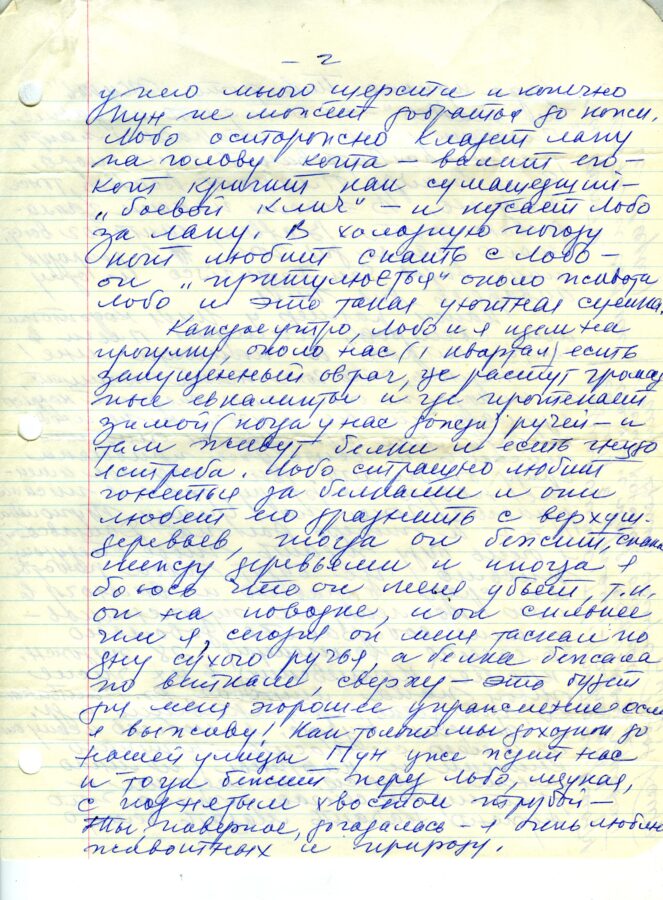 – 2
у него много шерсти и конечно
Пун не может добраться до кожи.
Лобо осторожно кладет лапу
на голову кота – валит его –
кот кричит как сумашедший –
„боевой клич“ – и кусает Лобо
за лапу. В холодную погоду
кот любит спать с Лобо –
он „притулється“ около живота
Лобо и это такая уютная сценка.
Каждое утро, Лобо и я идем на
прогулку, около нас (1 квартал) есть
запущенный овраг, где растут громад
ные евкалипты и где протекает
зимой (когда у нас дожди) ручей – и
там живут белки и есть гнездо
ястреба. Лобо страшно любит
гоняться за белками и они
любят его дразнить с верхуш.
деревьев, тогда он бежит,
между деревьями и иногда я
боюсь что он меня убьет, т.к.
он на поводке, и он сильнее
чем я, сегодня он меня таскал по
дну сухого ручья, а белка бежала
по веткам, сверху – это будет
для меня хорошее упражнение если
я выживу! Как только мы доходим до
нашей улицы Пун уже ждет нас
и тогда бежит перед Лобо, мяукая,
с поднятым хвостом трубой –
Ты, наверное, догадалась – я очень люблю
животных и природу.